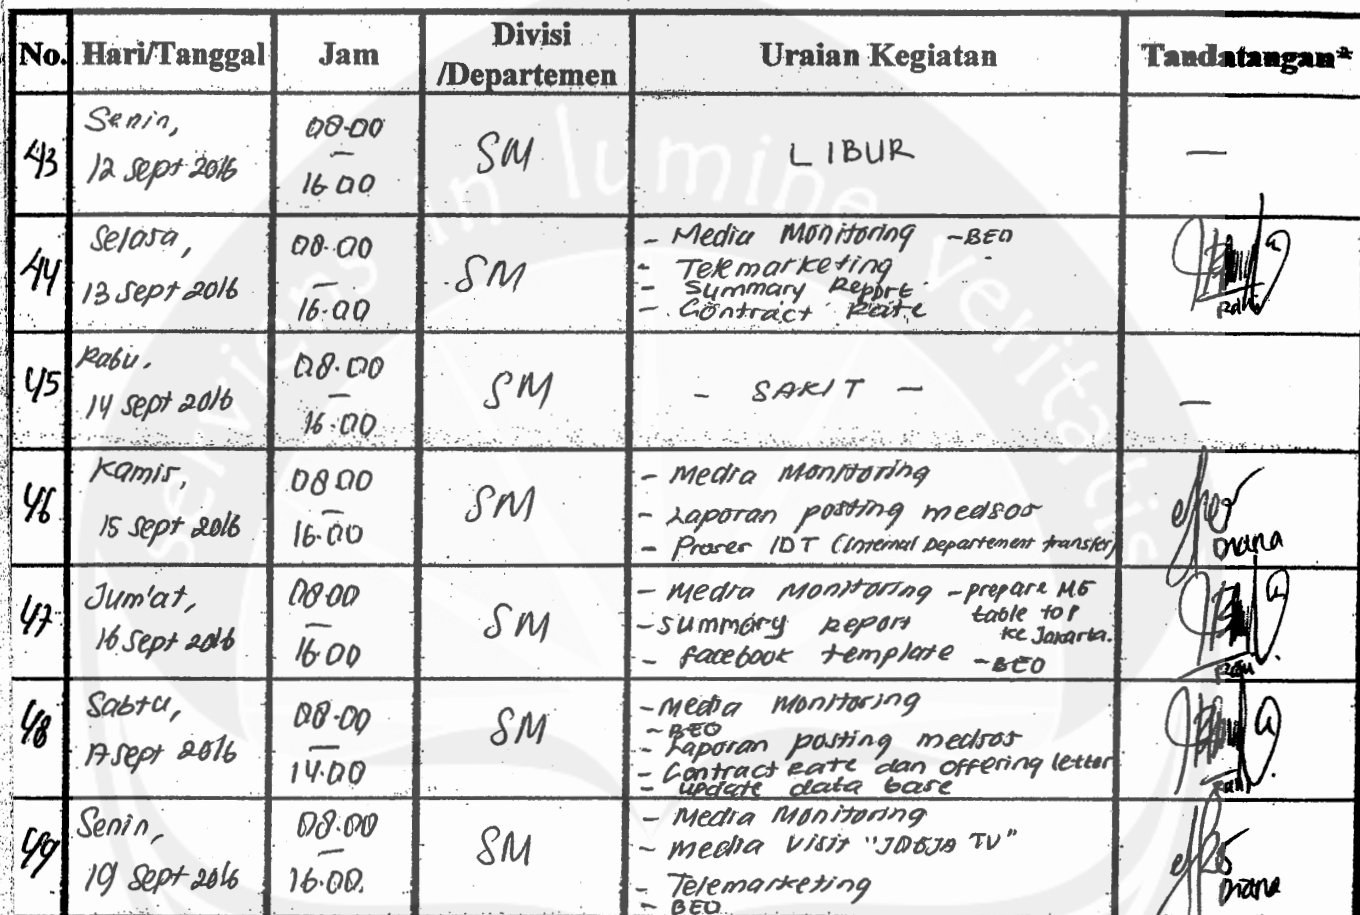 No. Hari/Tanggal Jam Divisi /Departemen Uraian Kegiatan Tandatangan*
43 Senin, 12 Sept 2016 08.00 — 16.00 SM LIBUR —
44 Selasa, 13 Sept 2016 08.00 — 16.00 SM
- Media Monitoring - BEO
- Telemarketing
- Summary Report
- Contract Rate
Rani
45 Rabu, 14 Sept 2016 08.00 — 16.00 SM - SAKIT - —
46 Kamis, 15 Sept 2016 08.00 — 16.00 SM
- Media Monitoring
- Laporan posting medsos
- Proses IDT (Internal Departement transfer)
Diana
47 Jum'at, 16 Sept 2016 08.00 — 16.00 SM
- Media Monitoring - prepare MG
table top
- Summary Report ke Jakarta.
- facebook template - BEO
Rani
48 Sabtu, 17 Sept 2016 08.00 — 14.00 SM
- Media Monitoring
- BEO
- Laporan posting medsos
- Contract Rate dan offering letter
- update data base
Rani
49 Senin, 19 Sept 2016 08.00 — 16.00. SM
- Media Monitoring
- Media Visit "JOGJA TV"
- Telemarketing
- BEO
Diana
serviens in lumine veritatis